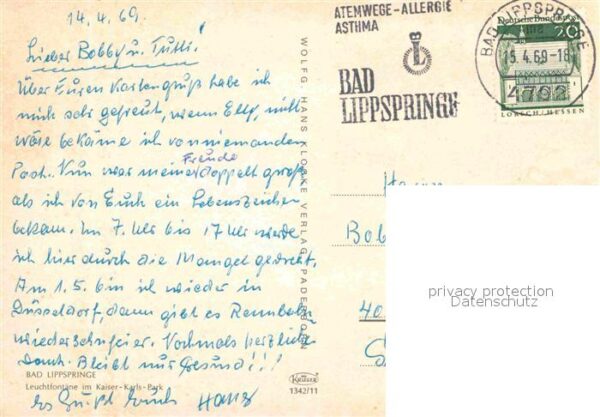 14.4.69.
Lieber Bobby u. Tutti!
Über Euren Kartengruß habe ich
mich sehr gefreut, wenn Elly nicht
wäre bekäme ich von niemanden
Post. Nun war meine Freude doppelt groß
als ich von Euch ein Lebenszeichen
bekam. Von 7. Uhr bis 17 Uhr werde
ich hier durch die Mangel gedreht.
Am 1.5. bin ich wieder in
Düsseldorf, dann gibt es Rennbahn
wiedersehnfeier. Nochmals herzlichen
Dank. Bleibt nur Gesund!!!
BAD LIPPSPRINGE
Leuchtfontäne im Kaiser-Karls-Park
Es Grüßt Euch Hans
WOLFG. HANS KLOCKE VERLAG PADERBORN
Krüger
1342/11
ATEMWEGE-ALLERGIE
ASTHMA
L
BAD
LIPPSPRINGE
BAD LIPPSPRINGE
15.4.69-18
4792
Deutsche Bundespost
20
LORSCH/HESSEN
Bob
40
privacy protection
Datenschutz